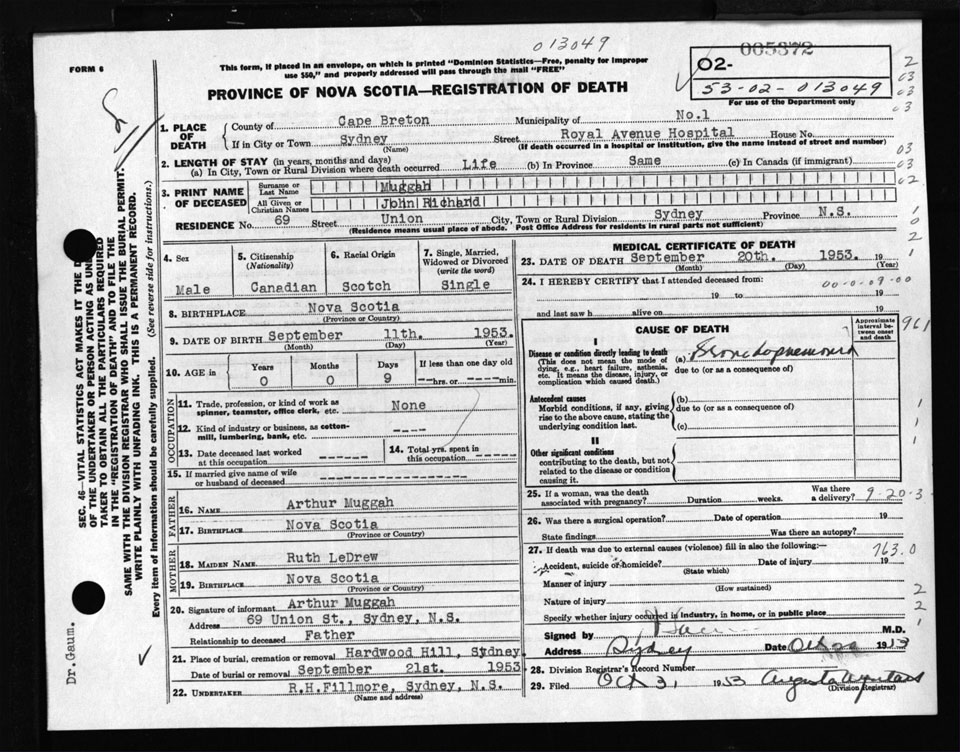 013049
005372
FORM 6
This form, if placed in an envelope, on which is printed "Dominion Statistics—Free, penalty for improper
use $50," and properly addressed will pass through the mail "FREE"
O2-
53-02-013049
For use of the Department only
PROVINCE OF NOVA SCOTIA—REGISTRATION OF DEATH
1. PLACE OF DEATH
County of Cape Breton Municipality of No.1
If in City or Town Sydney (Name) Street Royal Avenue Hospital House No.
(If death occurred in a hospital or institution, give the name instead of street and number)
2. LENGTH OF STAY (in years, months and days)
(a) In City, Town or Rural Division where death occurred Life (b) In Province Same (c) In Canada (if immigrant)
3. PRINT NAME OF DECEASED
Surname or Last Name Muggah
All Given or Christian Names John Richard
RESIDENCE No. 69 Street Union City, Town or Rural Division Sydney Province N.S.
(Residence means usual place of abode. Post Office Address for residents in rural parts not sufficient)
4. Sex Male
5. Citizenship (Nationality) Canadian
6. Racial Origin Scotch
7. Single, Married, Widowed or Divorced (write the word) Single
8. BIRTHPLACE Nova Scotia
(Province or Country)
9. DATE OF BIRTH September 11th. 1953.
(Month) (Day) (Year)
10. AGE in Years 0 Months 0 Days 9 If less than one day old ---hrs. or ---min.
OCCUPATION
11. Trade, profession, or kind of work as spinner, teamster, office clerk, etc. None
12. Kind of industry or business, as cotton-mill, lumbering, bank, etc. ----
13. Date deceased last worked at this occupation -----
14. Total yrs. spent in this occupation -----
15. If married give name of wife or husband of deceased
FATHER
16. NAME Arthur Muggah
17. BIRTHPLACE Nova Scotia
(Province or Country)
MOTHER
18. MAIDEN NAME Ruth LeDrew
19. BIRTHPLACE Nova Scotia
(Province or Country)
20. Signature of informant Arthur Muggah
Address 69 Union St., Sydney, N.S.
Relationship to deceased Father
21. Place of burial, cremation or removal Hardwood Hill, Sydney.
Date of burial or removal September 21st. 1953.
22. UNDERTAKER R.H.Fillmore, Sydney, N.S.
(Name and address)
MEDICAL CERTIFICATE OF DEATH
23. DATE OF DEATH September 20th. 1953. 19
(Month) (Day) (Year)
24. I HEREBY CERTIFY that I attended deceased from:
00-0-09-00
19 to 19
and last saw h alive on 19
CAUSE OF DEATH
Approximate interval between onset and death
961
I
Disease or condition directly leading to death
(This does not mean the mode of dying, e.g., heart failure, asthenia, etc. It means the disease, injury, or complication which caused death.)
(a) Bronchopneumonia
due to (or as a consequence of)
Antecedent causes
Morbid conditions, if any, giving rise to the above cause, stating the underlying condition last.
(b)
due to (or as a consequence of)
(c)
II
Other significant conditions
contributing to the death, but not related to the disease or condition causing it.
25. If a woman, was the death associated with pregnancy? Duration weeks. Was there a delivery? 9-20-3
26. Was there a surgical operation? Date of operation 19
State findings Was there an autopsy?
27. If death was due to external causes (violence) fill in also the following:— 763.0
Accident, suicide or homicide? (State which) Date of injury 19
Manner of injury
(How sustained)
Nature of injury
Specify whether injury occurred in industry, in home, or in public place
Signed by M.D.
Address Sydney Date 19
28. Division Registrar's Record Number
29. Filed Oct 31 1953 Augusta
(Division Registrar)
SEC. 46—VITAL STATISTICS ACT MAKES IT THE D
OF THE UNDERTAKER OR PERSON ACTING AS UND
TAKER TO OBTAIN ALL THE PARTICULARS REQUIRED
IN THE "REGISTRATION OF DEATH" AND TO FILE THE
SAME WITH THE DIVISION REGISTRAR WHO SHALL ISSUE THE BURIAL PERMIT.
WRITE PLAINLY WITH UNFADING INK. THIS IS A PERMANENT RECORD.
Every item of information should be carefully supplied. (See reverse side for instructions.)
Dr.Gaum.